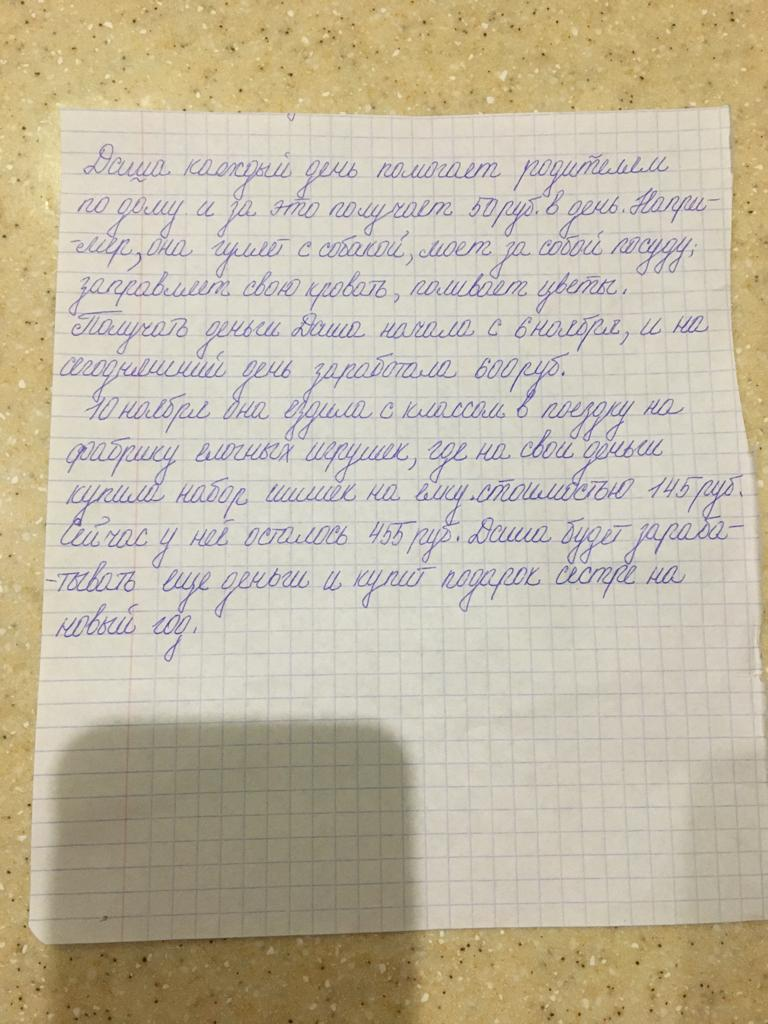 Даша каждый день помогает родителям
по дому и за это получает 50 руб. в день. Напри-
-мер, она гуляет с собакой, моет за собой посуду,
заправляет свою кровать, поливает цветы.
Получать деньги Даша начала с 6 ноября, и на
сегодняшний день заработала 600 руб.
10 ноября она ездила с классом в поездку на
фабрику елочных игрушек, где на свои деньги
купила набор шишек на елку стоимостью 145 руб.
Сейчас у неё осталось 455 руб. Даша будет зараба-
-тывать еще деньги и купит подарок сестре на
новый год.